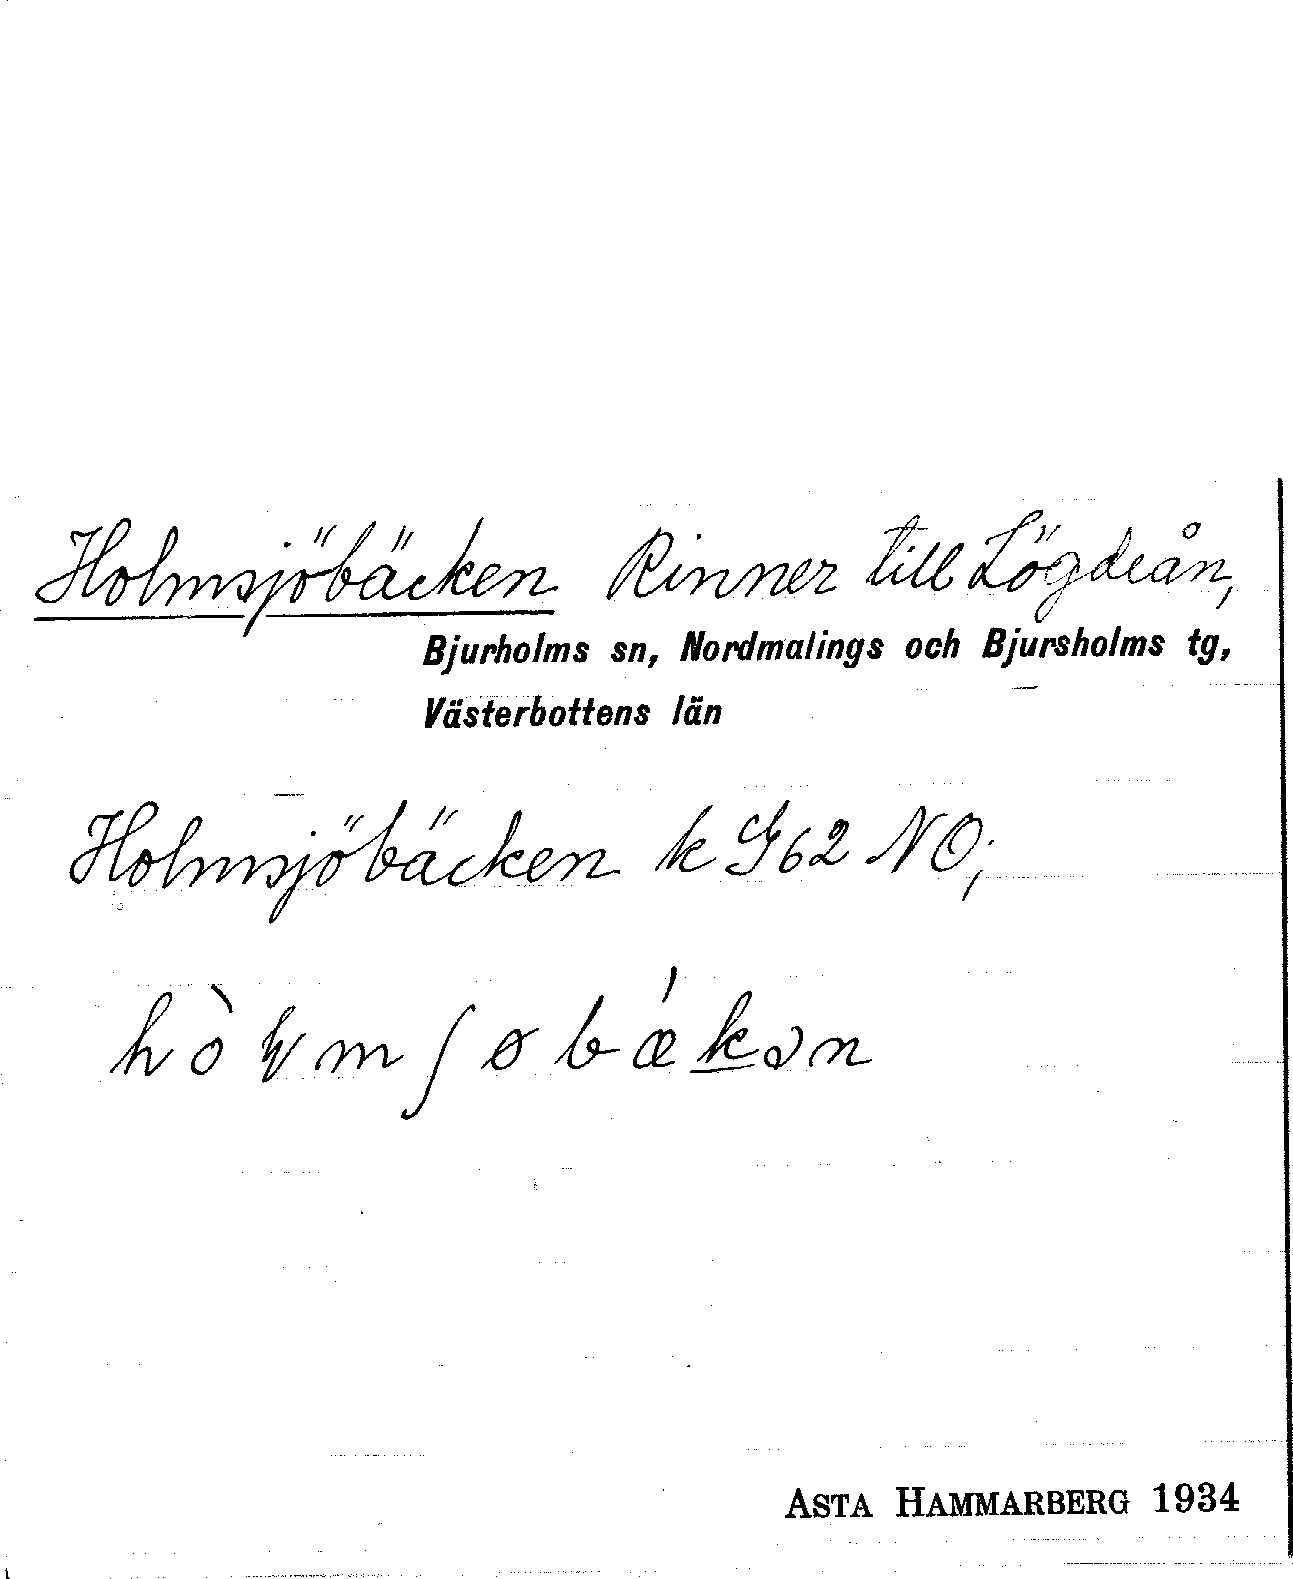 Holmsjöbäcken Rinner till Lögdeån,
Bjurholms sn, Nordmalings och Bjursholms tg,
Västerbottens län
Holmsjöbäcken k G62 NO;
ASTA HAMMARBERG 1934